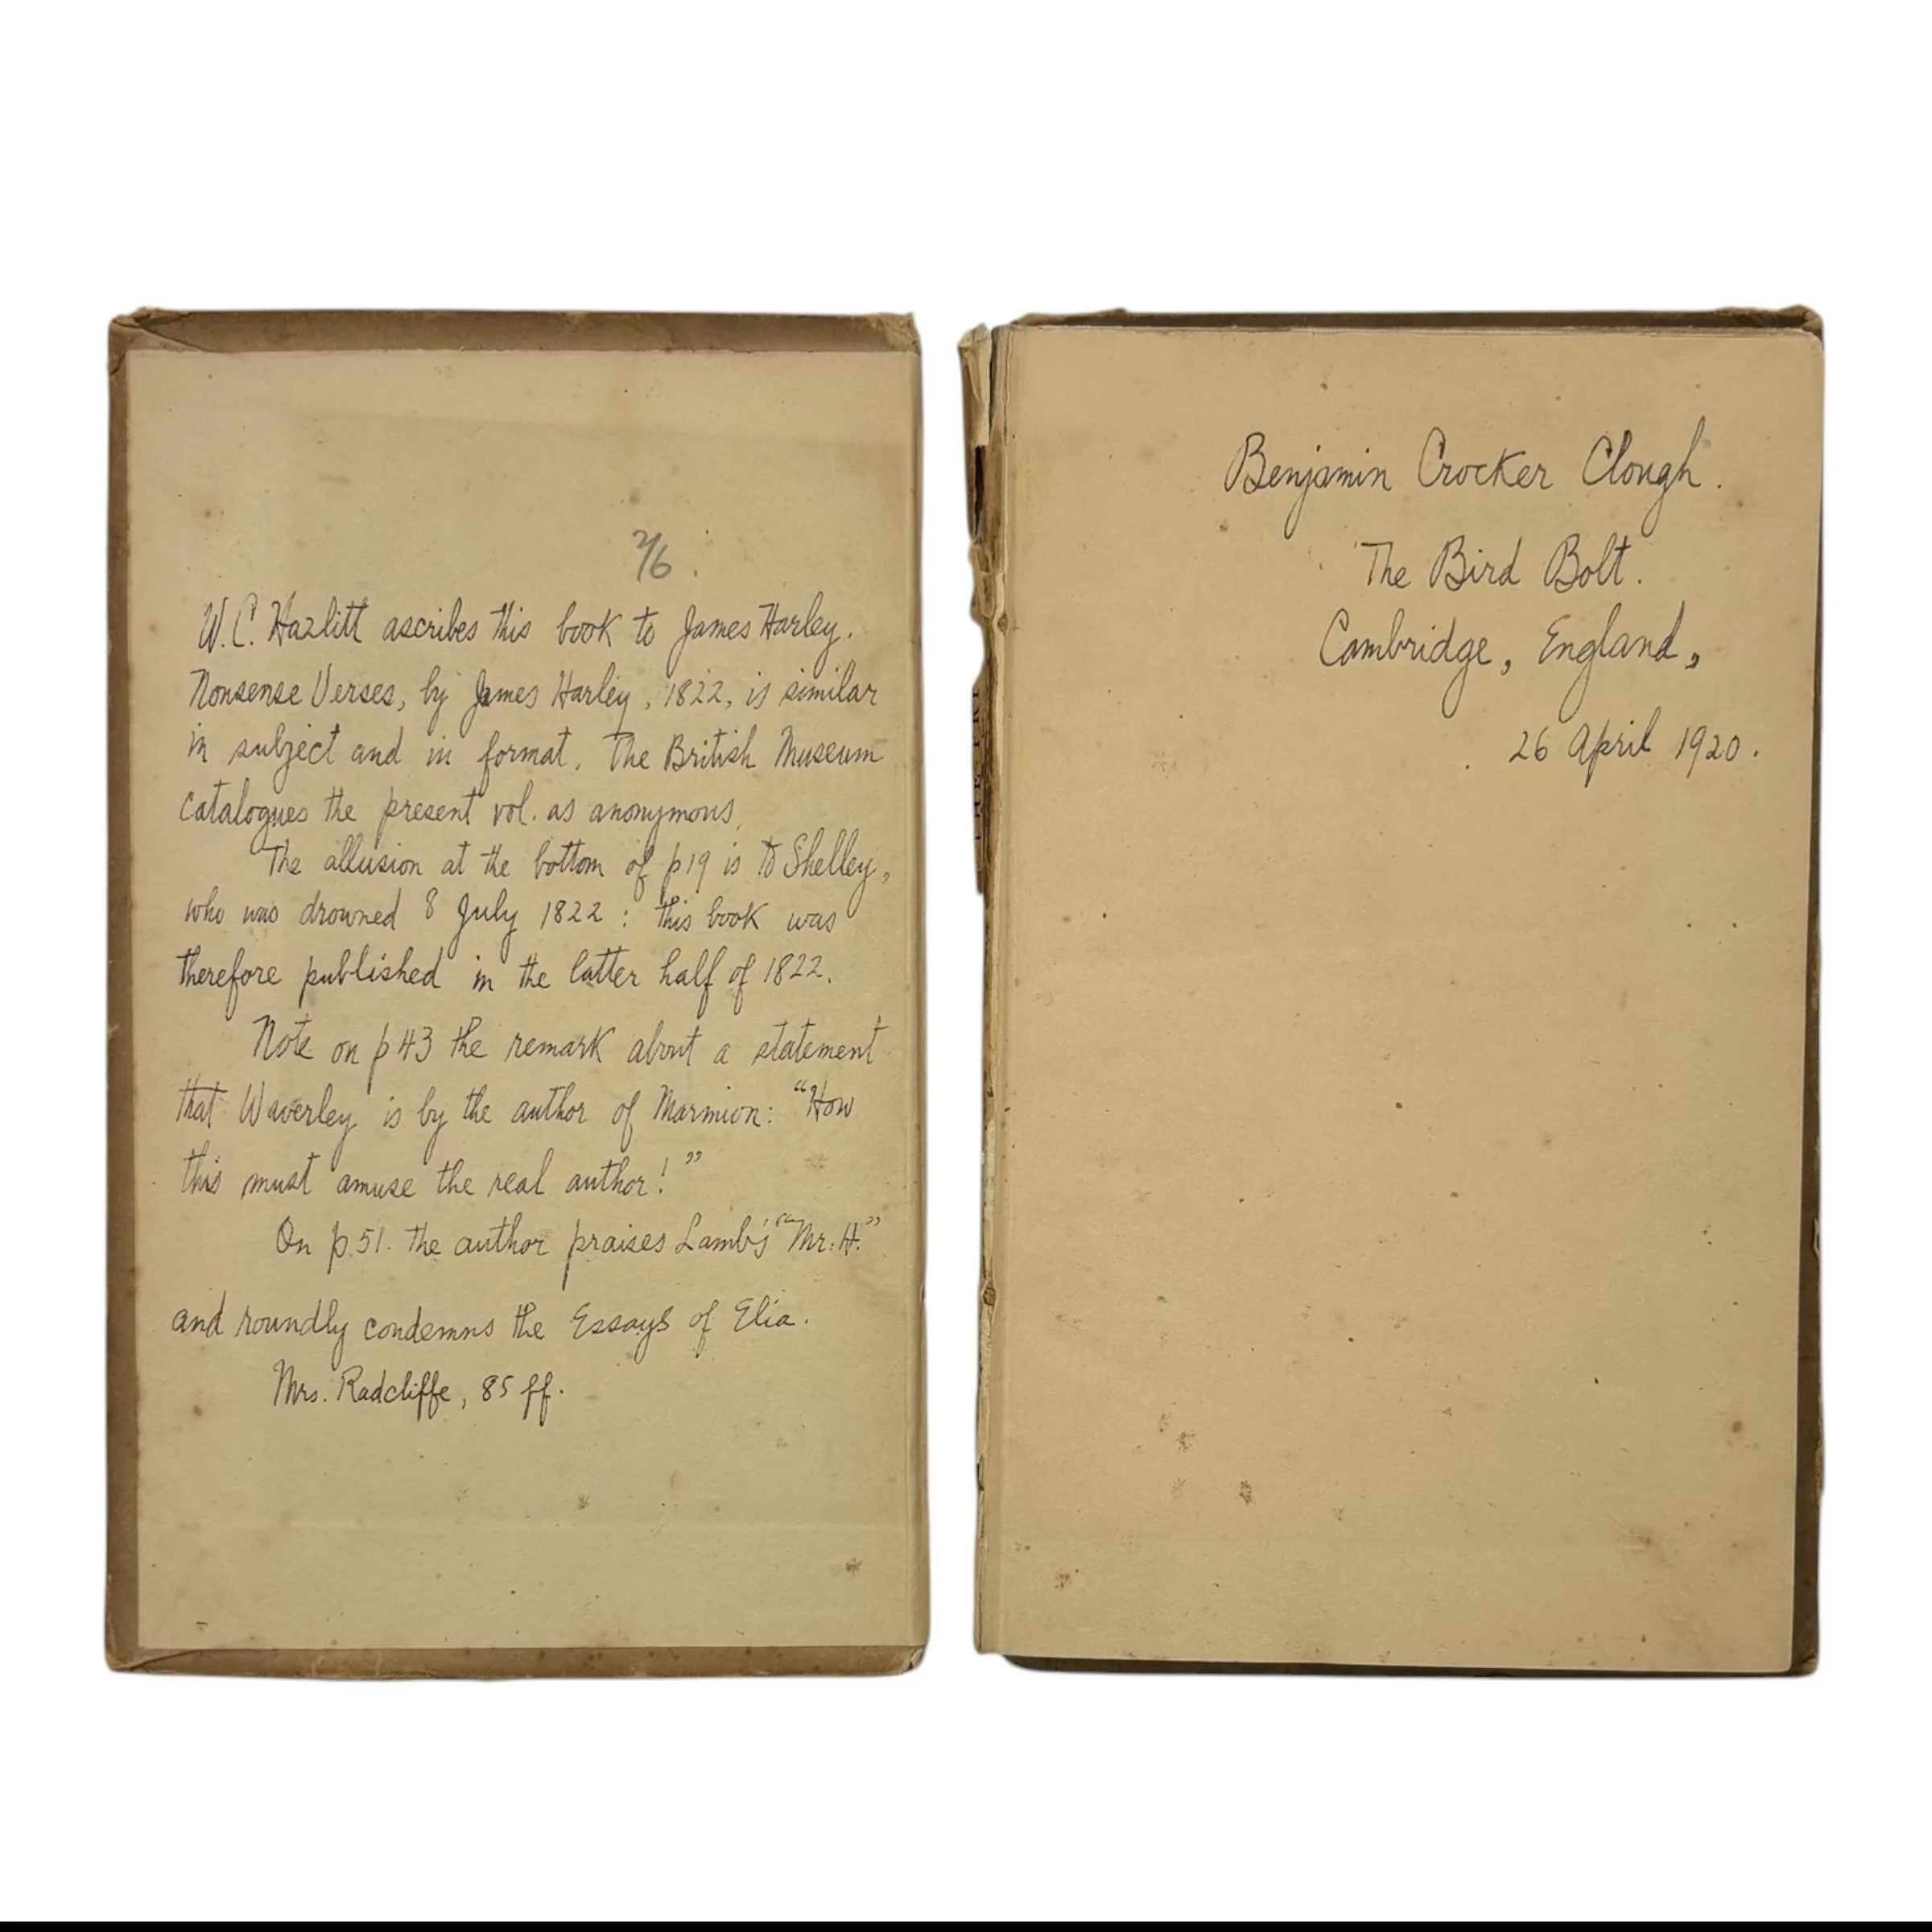 2/6.
W.C. Hazlitt ascribes this book to James Harley.
Nonsense Verses, by James Harley, 1822, is similar
in subject and in format. The British Museum
catalogues the present vol. as anonymous.
The allusion at the bottom of p19 is to Shelley,
who was drowned 8 July 1822: this book was
therefore published in the latter half of 1822.
Note on p43 the remark about a statement
that Waverley is by the author of Marmion: “How
this must amuse the real author!”
On p.51. the author praises Lamb's “Mr. H.”
and roundly condemns the Essays of Elia.
Mrs. Radcliffe, 85 ff.
Benjamin Crocker Clough.
The Bird Bolt.
Cambridge, England,
26 April 1920.